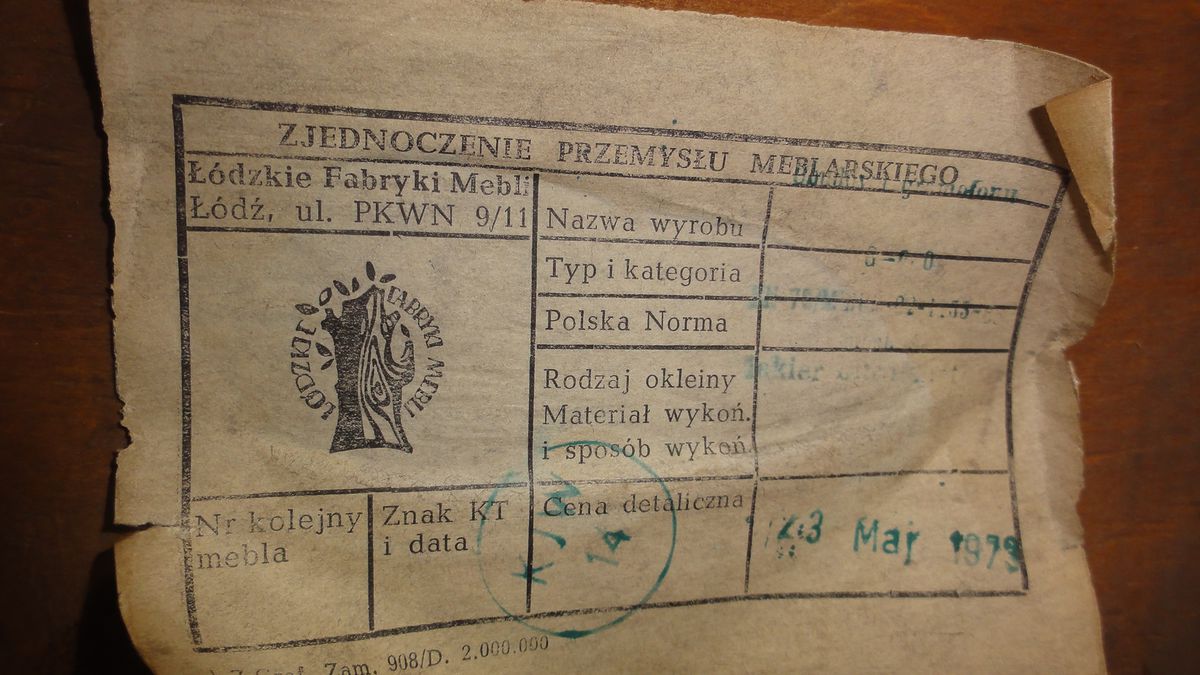 ZJEDNOCZENIE PRZEMYSŁU MEBLARSKIEGO
Łódzkie Fabryki Mebli
Łódź, ul. PKWN 9/11
ŁÓDZKIE FABRYKI MEBLI
Nazwa wyrobu
Typ i kategoria
Polska Norma
Rodzaj okleiny
Materiał wykoń.
i sposób wykoń.
lakier
Nr kolejny
mebla
Znak KT
i data
KJW
14
Cena detaliczna
23 Mar 1973
Zam. 908/D. 2.000.000